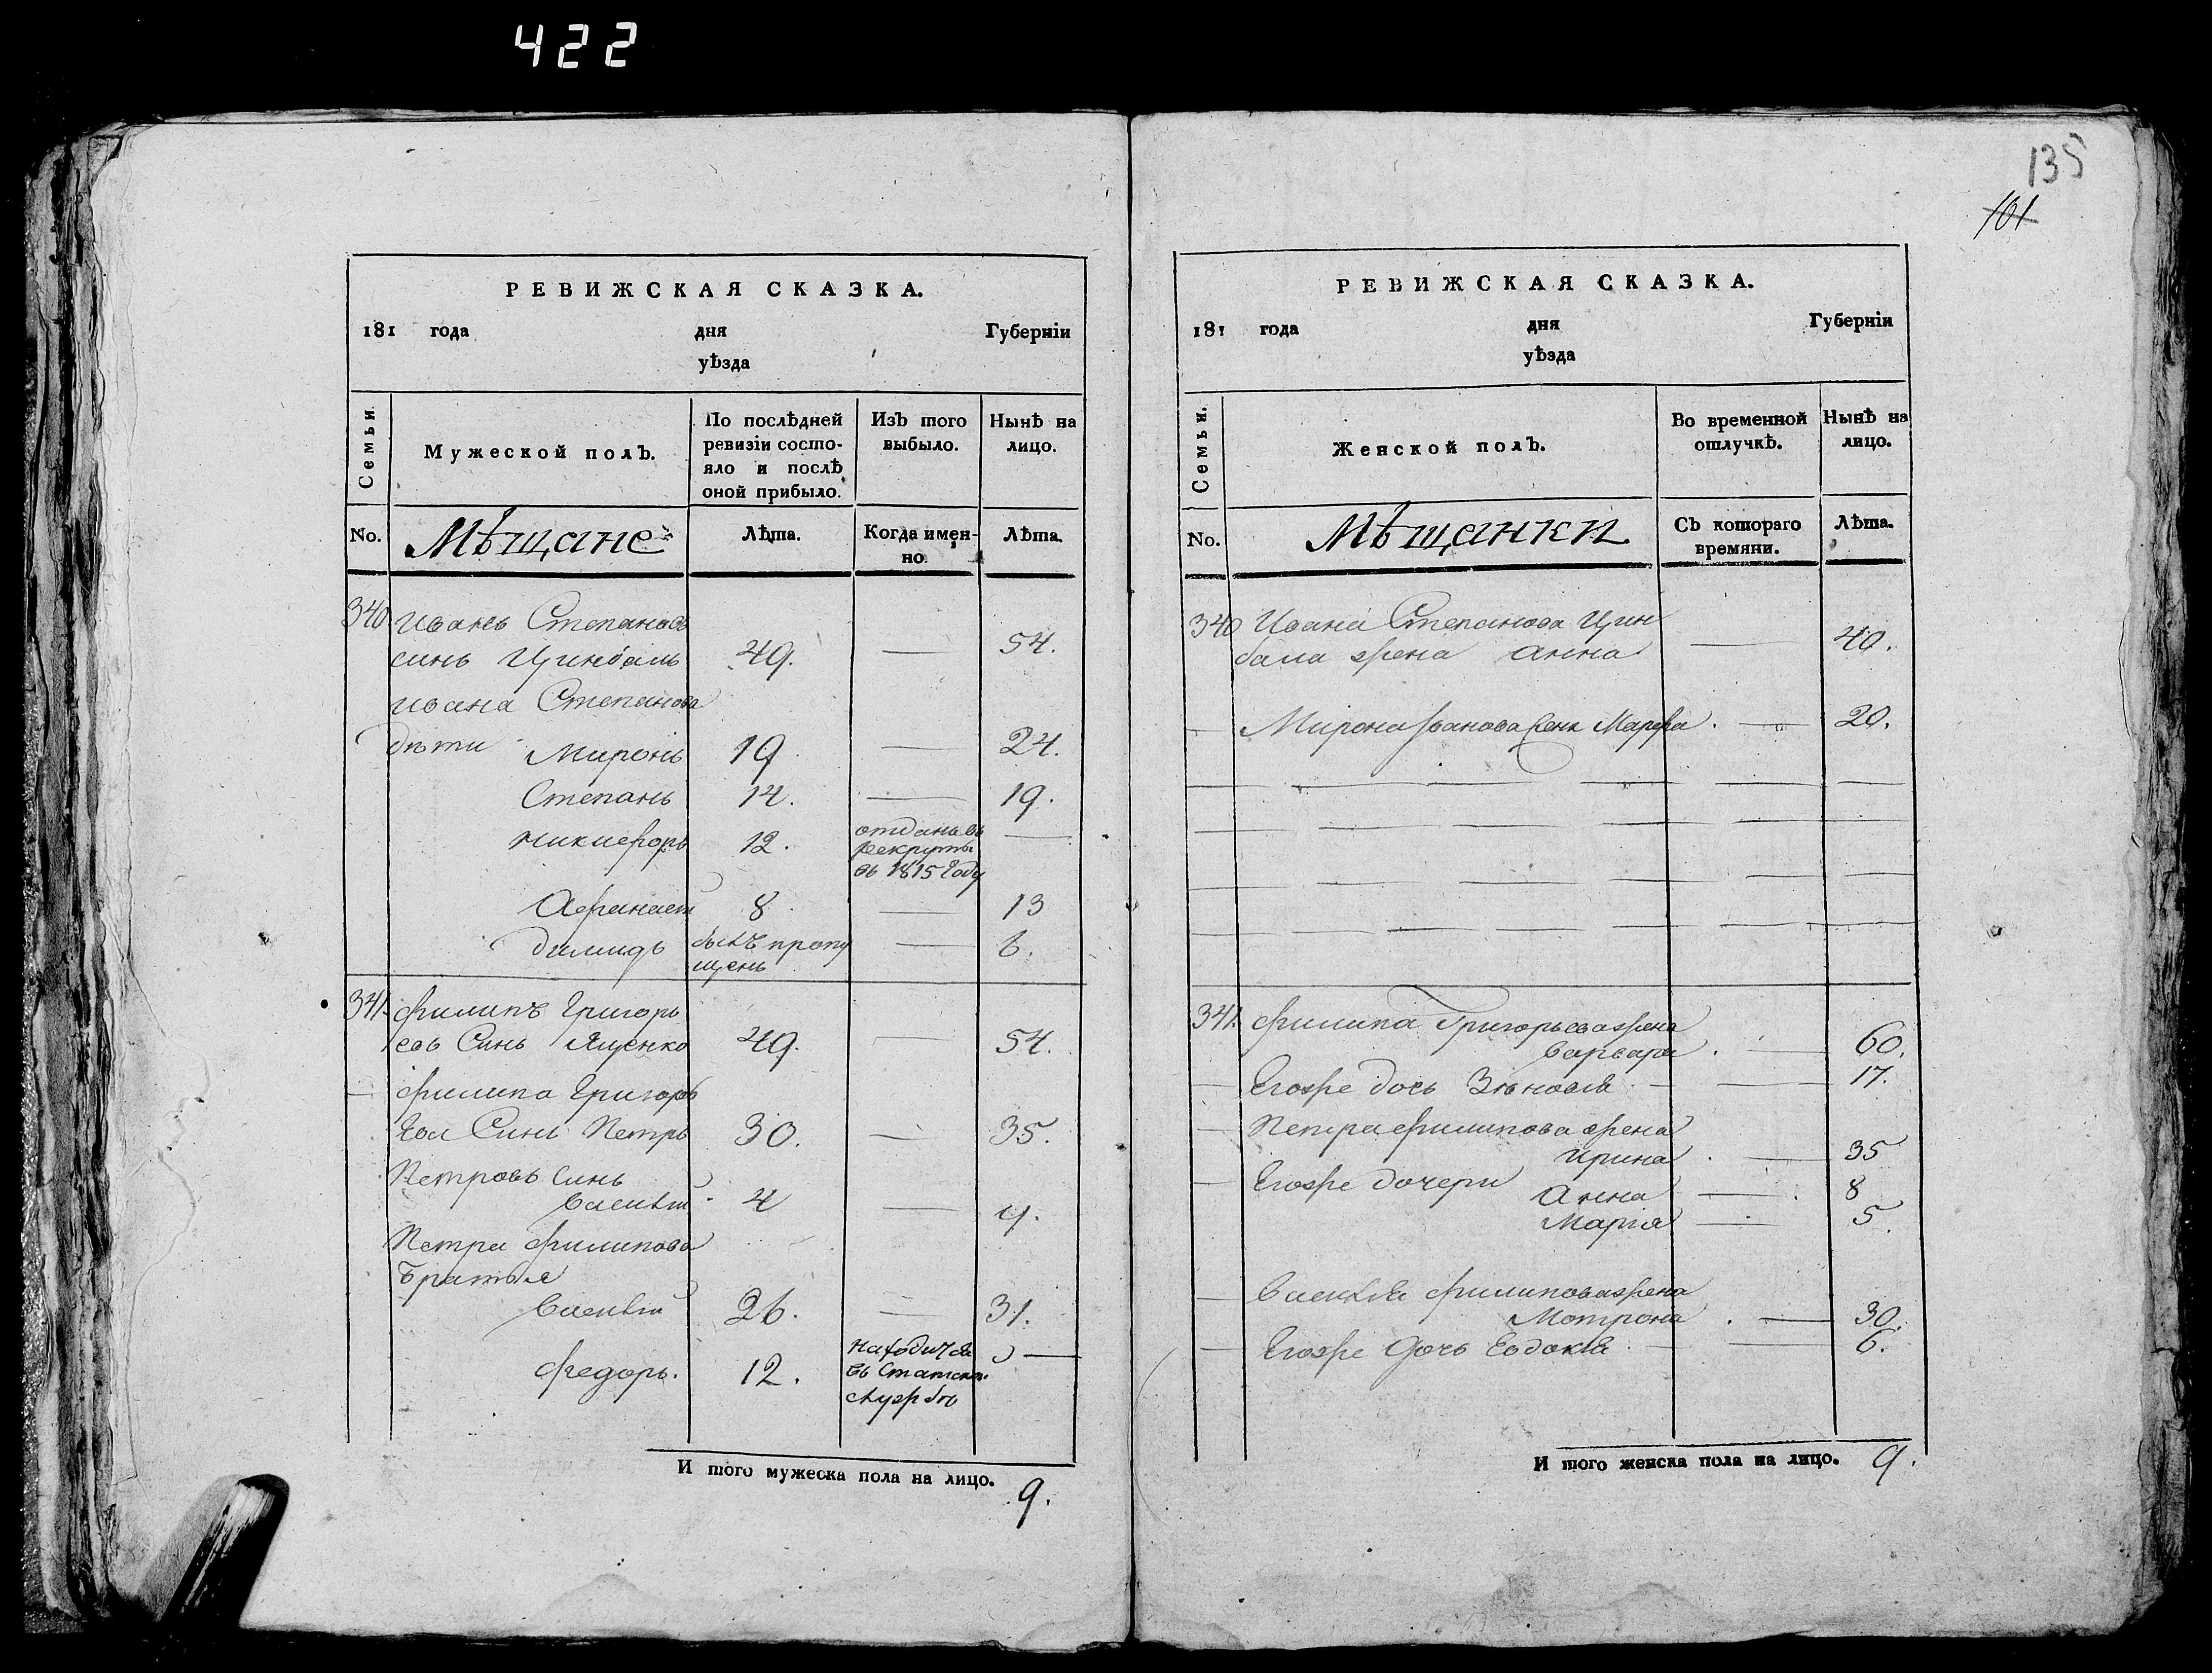 422
135
101
РЕВИЖСКАЯ СКАЗКА.
181 года дня Губерніи
уѣзда
Семьи.
Мужеской полъ.
По послѣдней ревизіи состояло и послѣ оной прибыло.
Изъ того выбыло.
Нынѣ на лицо.
No.
Мѣщане
Лѣта.
Когда имен-
но.
Лѣта.
340 Иванъ Степановъ
синъ Цинбалъ 49. — 54.
Ивана Степанова
дѣти Миронъ 19 — 24.
Степанъ 14. — 19.
Никифоръ 12. отданъ въ —
рекруты
въ 1815 Году
Афанасій 8 — 13
Димидъ былъ пропу — 6.
щенъ
341. Филипъ Григорь
евъ Синъ Ященко 49. — 54.
— Филипа Григорь
ева Синъ Петръ 30. — 35.
Петровъ Синъ
Василій 4 — 4.
Петра Филипова
братья
Василій 26. — 31.
Федоръ. 12. находится —
въ Статской
службѣ
И того мужеска пола на лицо. 9.
РЕВИЖСКАЯ СКАЗКА.
181 года дня Губерніи
уѣзда
Семьи.
Женской полъ.
Во временной
отлучкѣ.
Нынѣ на
лицо.
No.
Мѣщанки
Съ котораго
времяни.
Лѣта.
340 Ивана Степанова Цин
бала жена Анна — 40.
— Мирона Иванова жена Марфа — 20.
341. Филипа Григорьева жена
Варвара — 60.
— Егожъ дочь Зѣновія — 17.
— Петра Филипова жена
Ирина — 35
— Егожъ дочери Анна — 8
Марія — 5.
— Василія Филипова жена
Мотрона — 30.
— Егожъ Дочь Евдокія — 6.
И того женска пола на лицо. 9.